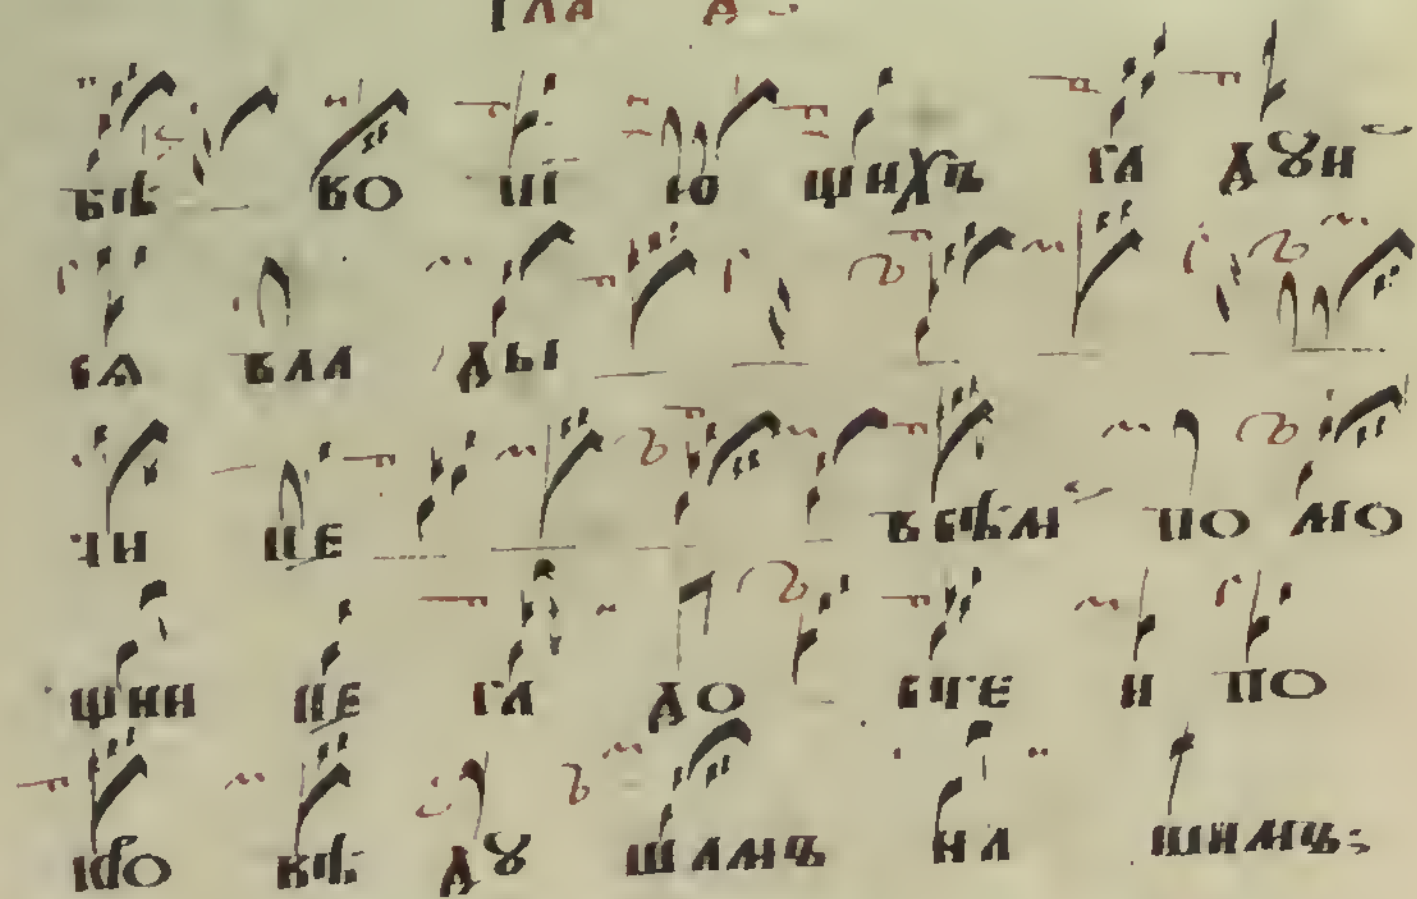 гла а҃
бѣ во пі ю щихъ ра дꙋи
сѧ вла ды
чи це всѣм по мо
щни це ра до сте и по
кро вѣ дꙋ шамъ на шимъ